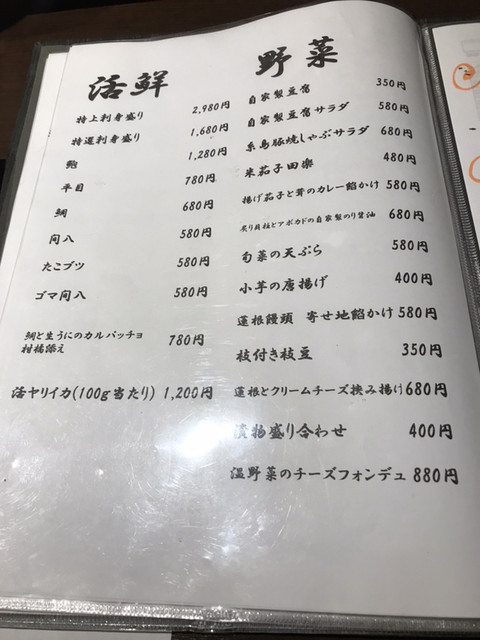 活鮮
特上刺身盛り 2,980円
特選刺身盛り 1,680円
鮑 1,280円
平目 780円
鯛 680円
間八 580円
たこブツ 580円
ゴマ間八 580円
鯛と生うにのカルパッチョ
柑橘添え 780円
活ヤリイカ(100g当たり) 1,200円
野菜
自家製豆腐 350円
自家製豆腐サラダ 580円
糸島豚焼しゃぶサラダ 680円
米茄子田楽 480円
揚げ茄子と茸のカレー餡かけ 580円
炙り貝柱とアボカドの自家製のり醤油 680円
旬菜の天ぷら 580円
小芋の唐揚げ 400円
蓮根饅頭 寄せ地餡かけ 580円
枝付き枝豆 350円
蓮根とクリームチーズ挟み揚げ 680円
漬物盛り合わせ 400円
温野菜のチーズフォンデュ 880円